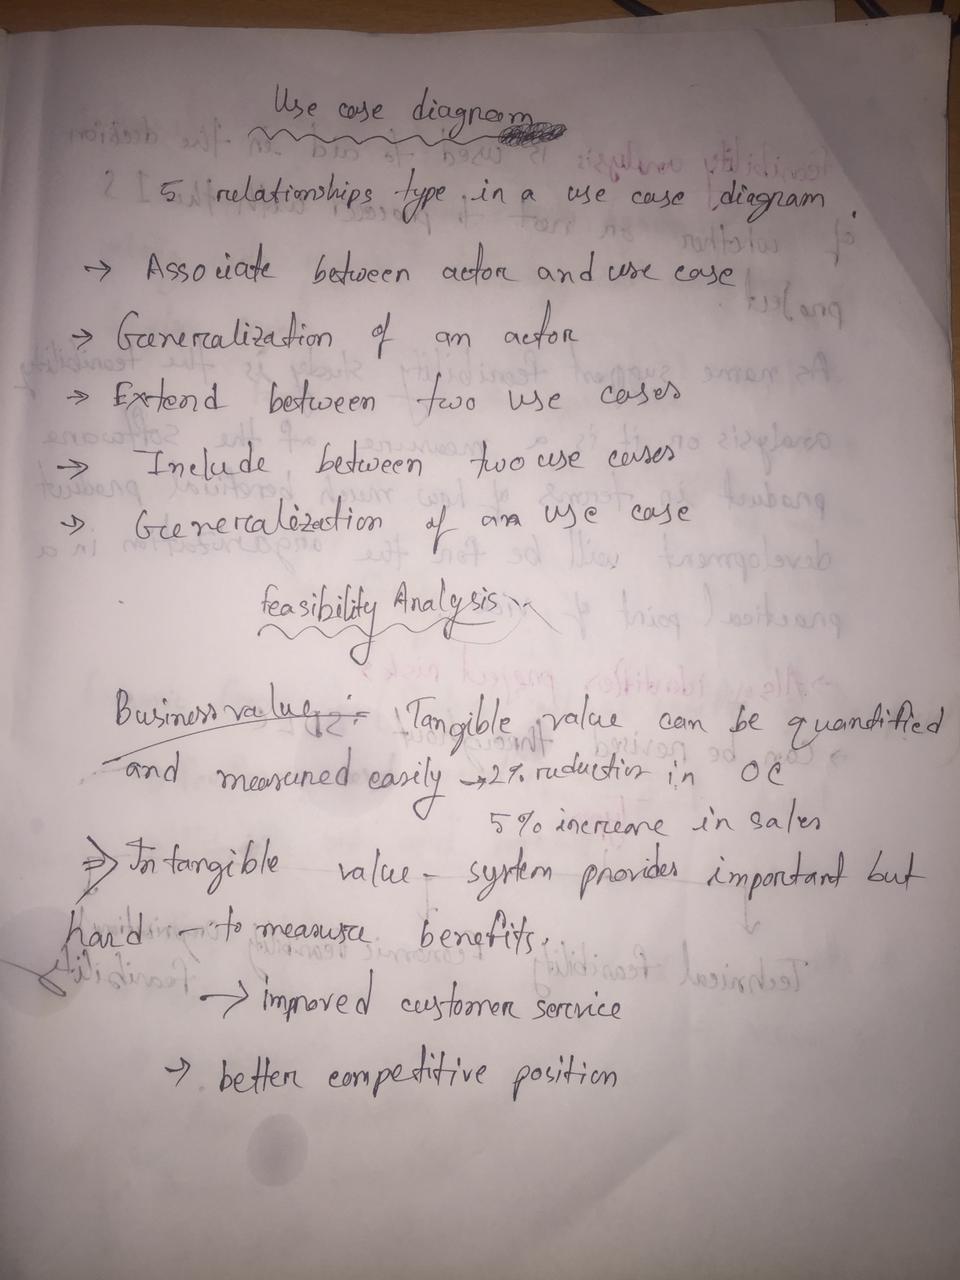 Use case diagram
5 relationships type in a use case diagram.
→ Associate between actor and use case
→ Generalization of an actor
→ Extend between two use cases
→ Include between two use cases
→ Generalization of an use case
feasibility Analysis
Business value :- Tangible value can be quantified
and measured easily → 2% reduction in OC
5% increase in sales
⇒ Intangible value - system provides important but
hard - to measure benefits.
→ improved customer service
→ better competitive position